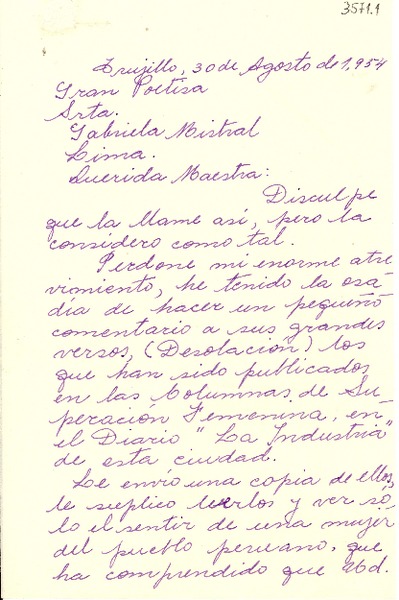 3571.1
Trujillo, 30 de Agosto de 1,954
Gran Poetisa
Srta.
Gabriela Mistral
Lima.
Querida Maestra:
Disculpe
que la llame así, pero la
considero como tal.
Perdone mi enorme atre
vimiento, he tenido la osa-
día de hacer un pequeño
comentario a sus grandes
versos, (Desolación) los
que han sido publicados
en las Columnas de Su-
peración Femenina, en
el Diario "La Industria"
de esta ciudad.
Le envío una copia de ellos,
le suplico leerlos y ver só-
lo el sentir de una mujer
del pueblo peruano, que
ha comprendido que Ud.